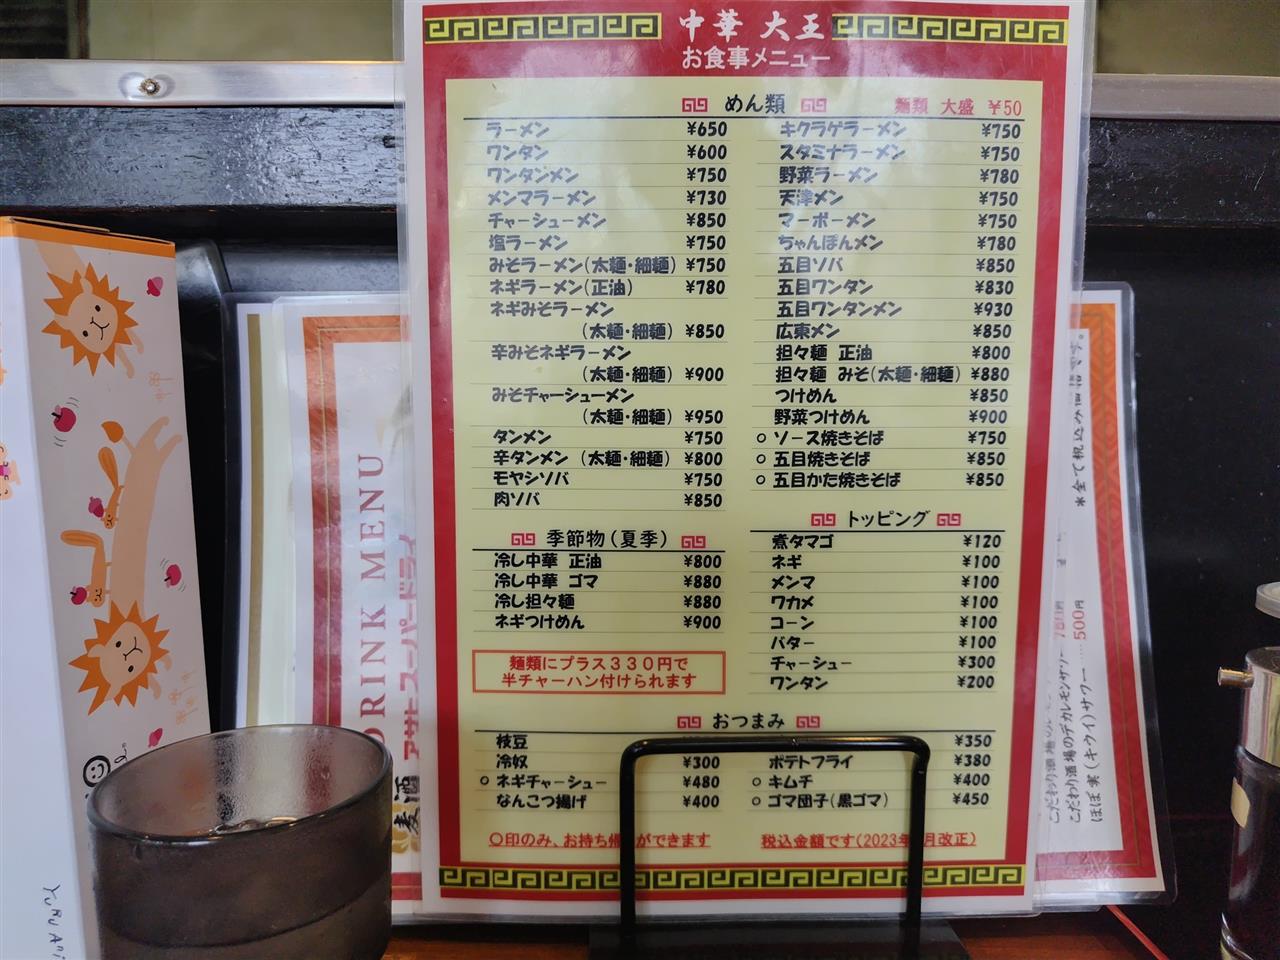 中華 大王
お食事メニュー
めん類
麺類 大盛 ￥50
ラーメン ¥650
ワンタン ¥600
ワンタンメン ¥750
メンマラーメン ¥730
チャーシューメン ¥850
塩ラーメン ¥750
みそラーメン(太麺・細麺) ¥750
ネギラーメン(正油) ¥780
ネギみそラーメン
(太麺・細麺) ¥850
辛みそネギラーメン
(太麺・細麺) ¥900
みそチャーシューメン
(太麺・細麺) ¥950
タンメン ¥750
辛タンメン (太麺・細麺) ¥800
モヤシソバ ¥750
肉ソバ ¥850
キクラゲラーメン ¥750
スタミナラーメン ¥750
野菜ラーメン ¥780
天津メン ¥750
マーボーメン ¥750
ちゃんぽんメン ¥780
五目ソバ ¥850
五目ワンタン ¥830
五目ワンタンメン ¥930
広東メン ¥850
担々麺 正油 ¥800
担々麺 みそ(太麺・細麺) ¥880
つけめん ¥850
野菜つけめん ¥900
○ ソース焼きそば ¥750
○ 五目焼きそば ¥850
○ 五目かた焼きそば ¥850
季節物(夏季)
冷し中華 正油 ¥800
冷し中華 ゴマ ¥880
冷し担々麺 ¥880
ネギつけめん ¥900
麺類にプラス３３０円で
半チャーハン付けられます
トッピング
煮タマゴ ¥120
ネギ ¥100
メンマ ¥100
ワカメ ¥100
コーン ¥100
バター ¥100
チャーシュー ¥300
ワンタン ¥200
おつまみ
枝豆
冷奴 ¥300
○ ネギチャーシュー ¥480
なんこつ揚げ ¥400
¥350
ポテトフライ ¥380
○ キムチ ¥400
○ ゴマ団子(黒ゴマ) ¥450
○印のみ、お持ち帰 ができます
税込金額です(2023年 月改正)
DRINK MENU
アサヒスーパードライ
麦酒
*全て税込み価格です。
こだわり酒場のデカレモンサワー 780円
ほぼ実(キウイ)サワー 500円